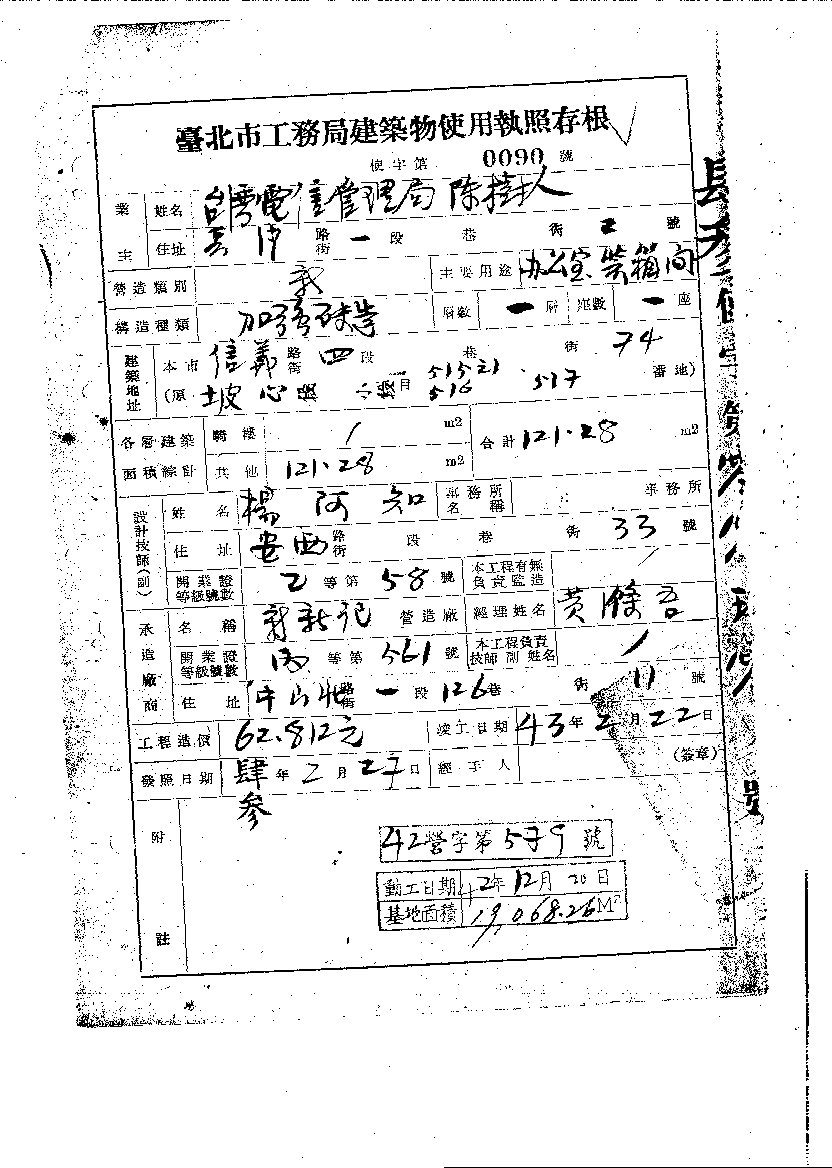 臺北市工務局建築物使用執照存根
使字第 0090 號
業主 姓名 台灣電信管理局 陳樹人
住址 長沙 路街 一 段 巷 街 2 號
營造類別 新 主要用途 办公室裝箱间
構造種類 加强磚造 層數 一 層 座數 一 座
建築地址 本市 信義 路街 四 段 巷 街 74
(原 坡心 段 目 515 21 516 517 番地)
各層建築面積總計 騎樓 / m2 合計 121.28 m2
其他 121.28 m2
設計技師(副) 姓名 楊阿知 事務所名稱 事務所
住址 安西 路街 段 巷 街 33 號
開業證等級號數 乙 等第 58 號 本工程有無負責監造 /
承造廠商 名稱 新新記 營造廠 經理姓名 黃條吾
開業證等級號數 丙 等第 561 號 本工程負責技師副姓名 /
住址 中山北 路街 一 段 126 巷 街 11 號
工程造價 62.812元 竣工日期 43 年 2 月 22 日
發照日期 肆参 年 2 月 27 日 經手人 (簽章)
附註
42營字第 579 號
動工日期 42年12月20日
基地面積 19,068.26 M²